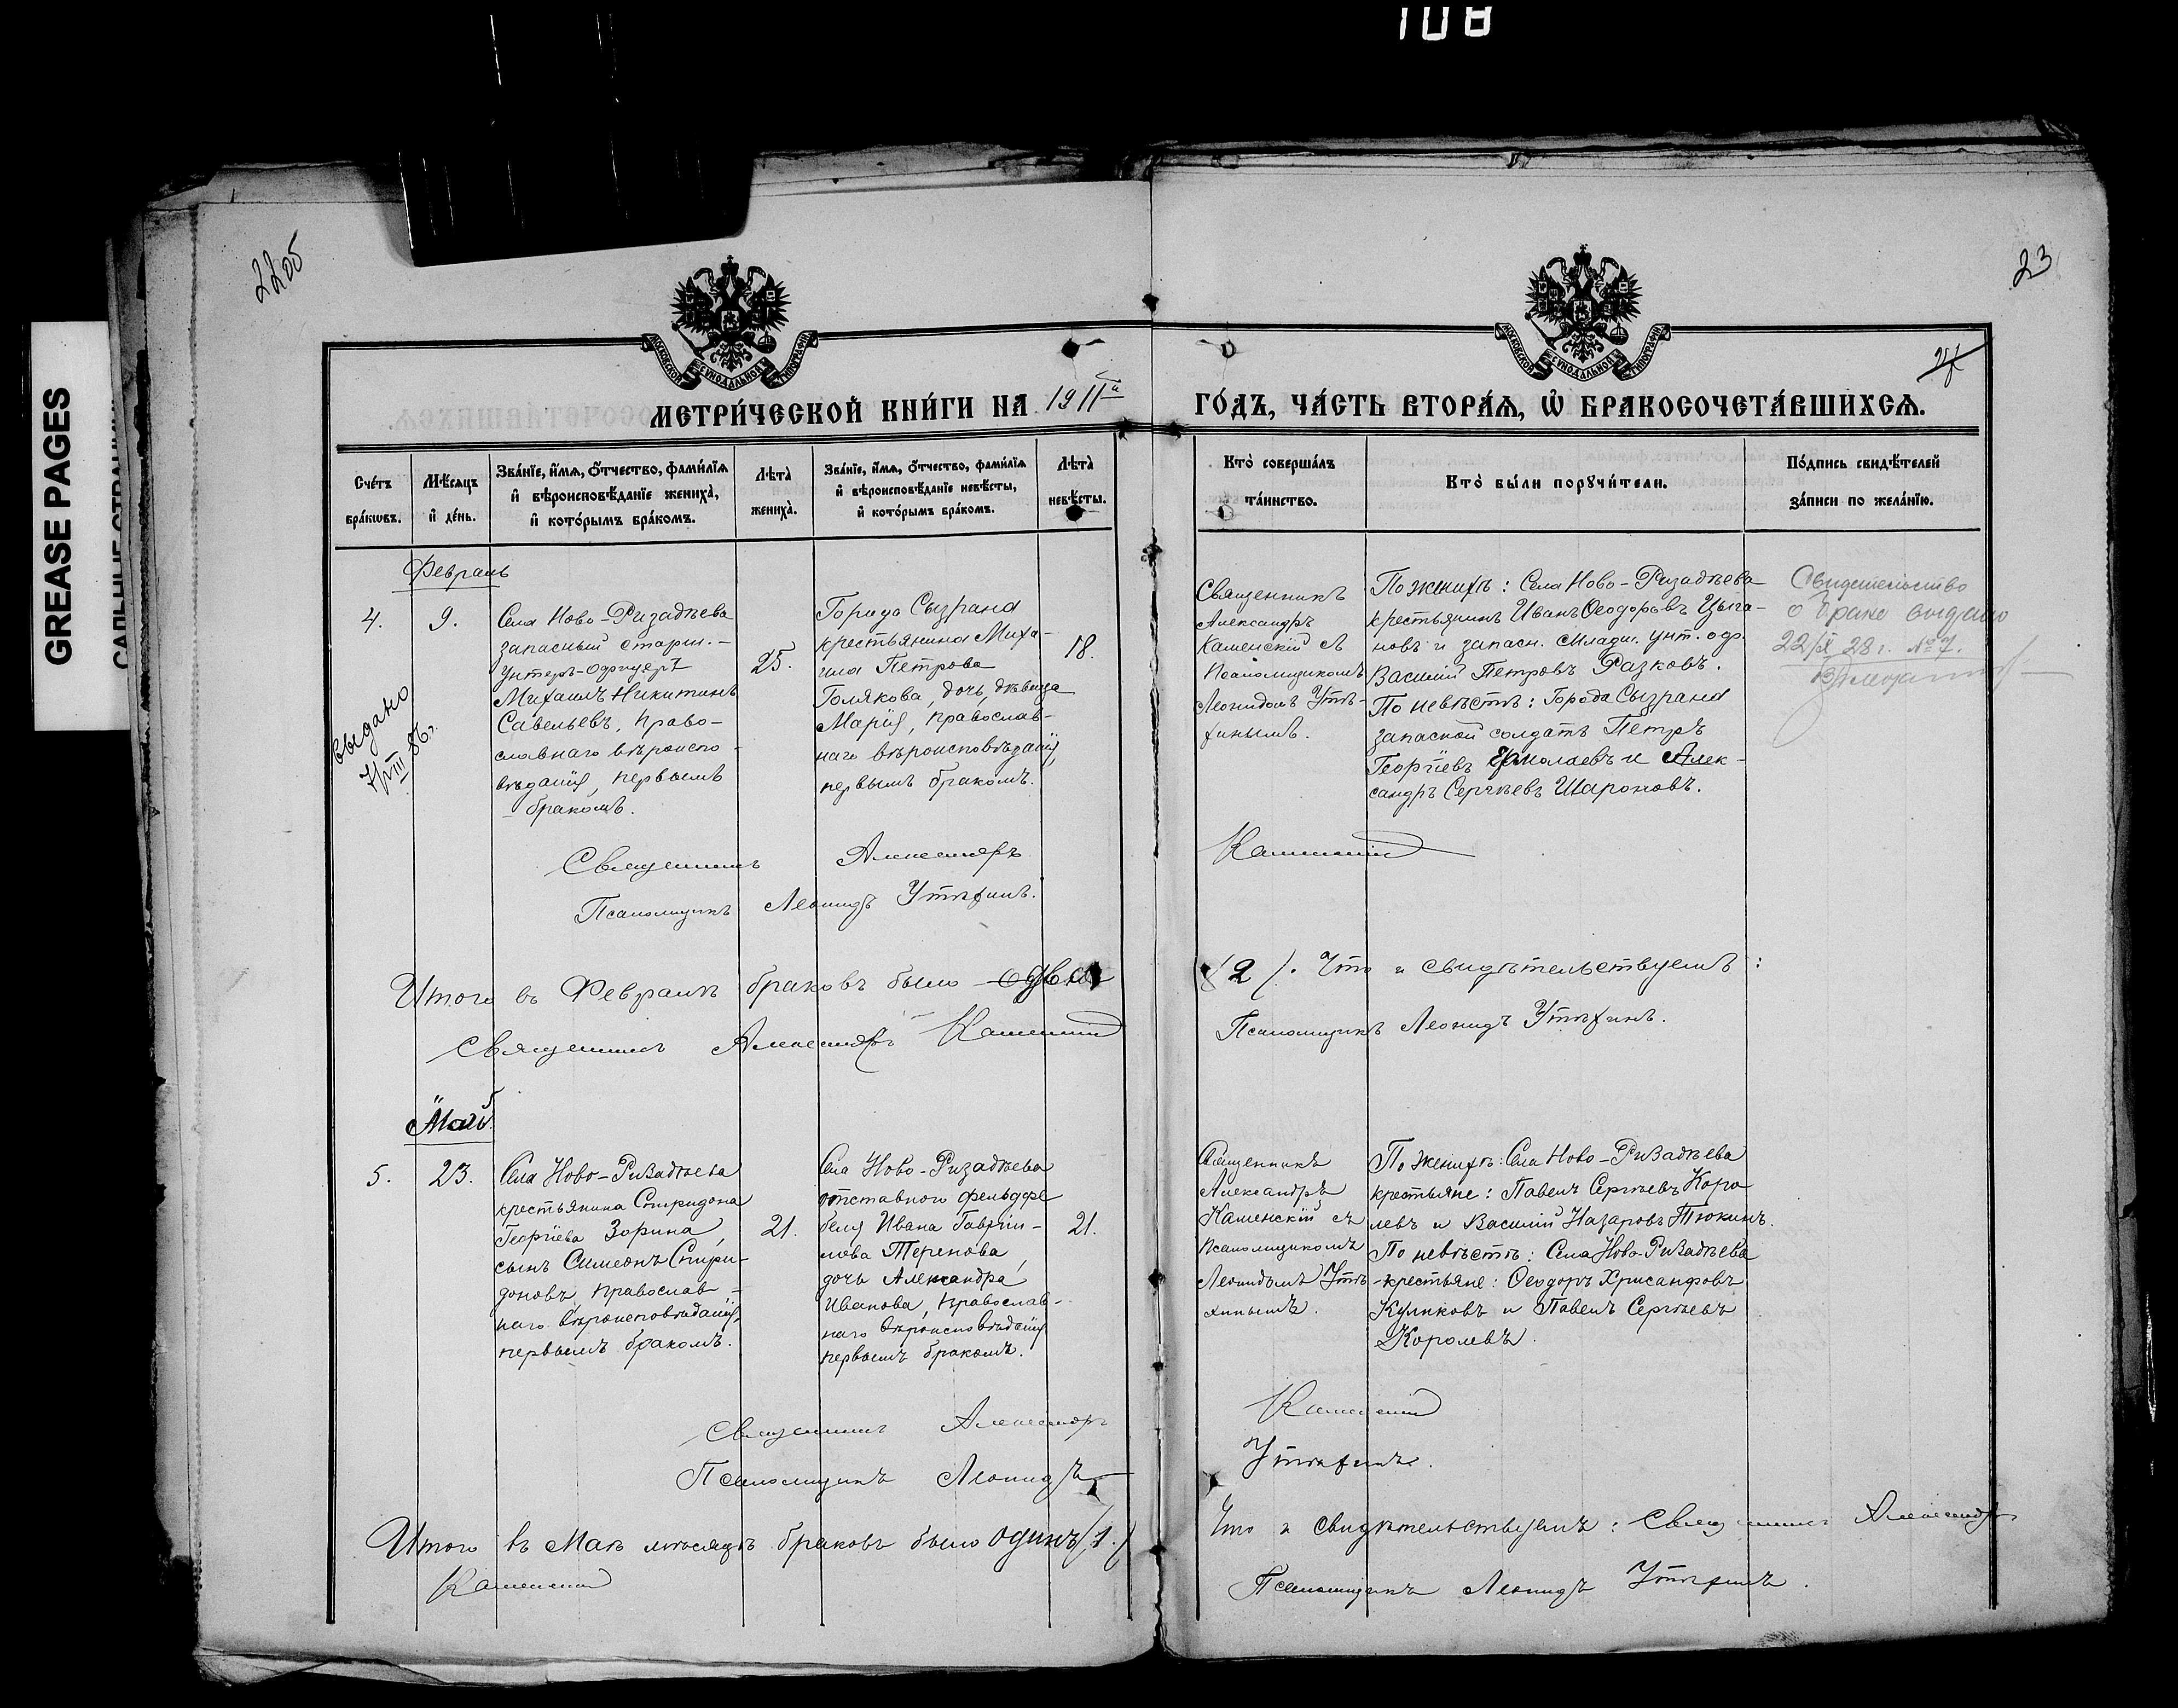 108
GREASE PAGES
22об
23
МОСКОВСКОЙ СѴНОДАЛЬНОЙ ТИПОГРАФІИ
МОСКОВСКОЙ СѴНОДАЛЬНОЙ ТИПОГРАФІИ
МЕТРИ́ЧЕСКОЙ КНИ́ГИ НА 1911й
ГО́ДЪ, ЧА́СТЬ ВТОРА́Ѧ, Ѡ҆ БРАКОСОЧЕТА́ВШИХСѦ.
Сче́тъ бра́кѡвъ.
Мѣ́сѧцъ и҆ де́нь.
Зва́нїе, и҆́мѧ, ѻ҆́тчество, фами́лїѧ и҆ вѣроисповѣ́данїе жениха̀, и҆ кото́рымъ бра́комъ.
Лѣ́та̀ жениха̀.
Зва́нїе, и҆́мѧ, ѻ҆́тчество, фами́лїѧ и҆ вѣроисповѣ́данїе невѣ́сты, и҆ кото́рымъ бра́комъ.
Лѣ́та̀ невѣ́сты.
Кто̀ соверша́лъ та́инство.
Кто̀ бы́ли порꙋчи́тели.
По́дпись свидѣ́телей за́писи по жела́нїю.
Февраль
4.
9.
Села Ново-Ризадѣева
запасный старш.-
унтеръ-офицеръ
Михаилъ Никитинъ
Савельевъ, право-
славнаго вѣроиспо-
вѣданія, первымъ
бракомъ.
25.
Города Сызрана
крестьянина Миха-
ила Петрова
Голякова, дочь, дѣвица
Марія, православ-
наго вѣроисповѣданія,
первымъ бракомъ.
18.
Священникъ
Александръ
Каменскій съ
псаломщикомъ
Леонидомъ Утѣ-
хинымъ.
По женихѣ: Села Ново-Ризадѣева
крестьянинъ Иванъ Ѳеодоровъ Цыга-
новъ и запасн. младш. унт. оф.
Василій Петровъ Разковъ.
По невѣстѣ: Города Сызрана
запасной солдатъ Петръ
Георгіевъ Ермолаевъ и Алек-
сандръ Сергѣевъ Шароновъ.
Свидетельство
о браке выдано
22/IX 28 г. № 7.
Выдано
7/VIII 86 г.
Священникъ Александръ Каменскій
Псаломщикъ Леонидъ Утѣхинъ.
Итого въ Февралѣ браковъ было два (2). Что и свидѣтельствуемъ:
Священникъ Александръ Каменскій
Псаломщикъ Леонидъ Утѣхинъ.
Май
5.
23.
Села Ново-Ризадѣева
крестьянина Спиридона
Георгіева Зорина,
сынъ Симеонъ Спири-
доновъ, православ-
наго вѣроисповѣданія,
первымъ бракомъ.
21.
Села Ново-Ризадѣева
отставного фельдфе
беля Ивана Гавріи-
лова Теренова,
дочь Александра
Иванова, православ-
наго вѣроисповѣданія
первымъ бракомъ.
21.
Священникъ
Александръ
Каменскій съ
псаломщикомъ
Леонидомъ Утѣ-
хинымъ.
По женихѣ: Села Ново-Ризадѣева
крестьяне: Павелъ Сергѣевъ Коро
левъ и Василій Назаровъ Тюкинъ.
По невѣстѣ: Села Ново-Ризадѣева
крестьяне: Ѳеодоръ Хрисанфовъ
Куликовъ и Павелъ Сергѣевъ
Королевъ.
Священникъ Александръ Каменскій
Псаломщикъ Леонидъ Утѣхинъ.
Итого въ Маѣ мѣсяцѣ браковъ было одинъ (1.)
Что и свидѣтельствуемъ: Священникъ Александръ
Каменскій
Псаломщикъ Леонидъ Утѣхинъ.